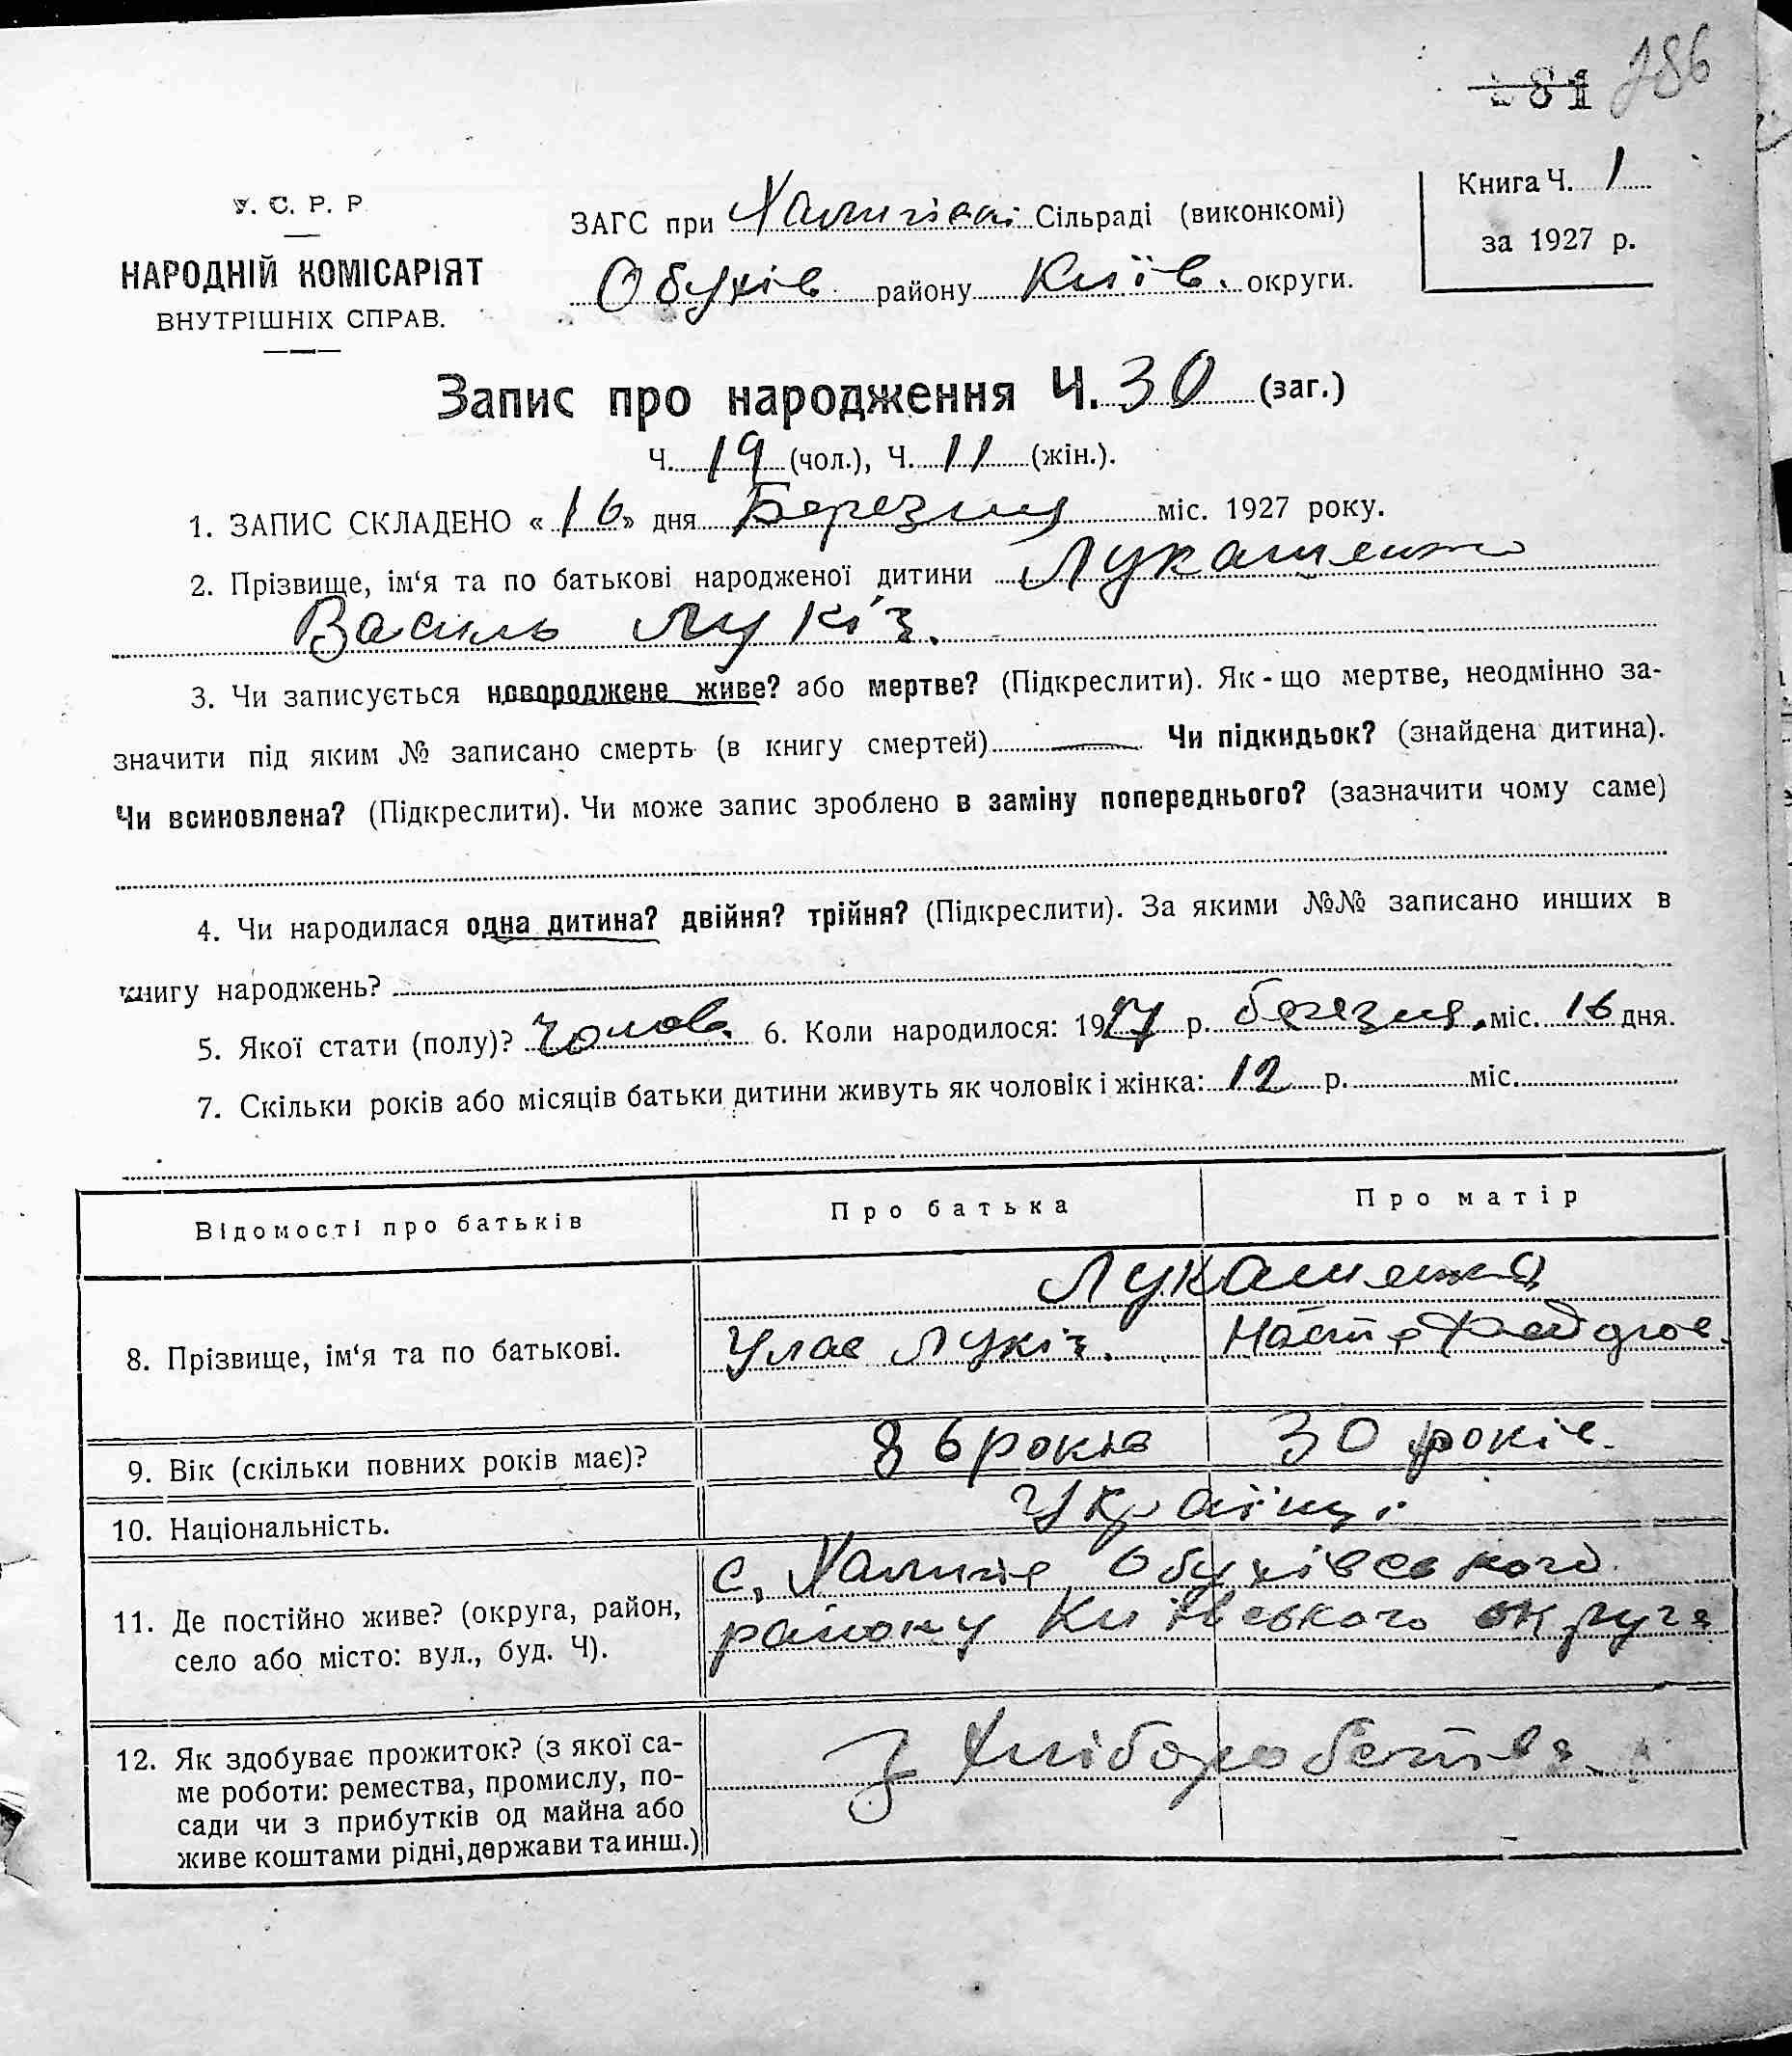 181 286
У. С. Р. Р
НАРОДНІЙ КОМІСАРІЯТ
ВНУТРІШНІХ СПРАВ.
ЗАГС при Халипській Сільраді (виконкомі)
Обухів району Київ. округи.
Книга Ч. 1
за 1927 р.
Запис про народження Ч. 30 (заг.)
Ч. 19 (чол.), Ч. 11 (жін.).
1. ЗАПИС СКЛАДЕНО «16» дня Березня міс. 1927 року.
2. Прізвище, ім‘я та по батькові народженої дитини Лукашенко
Василь Лукіч.
3. Чи записується новороджене живе? або мертве? (Підкреслити). Як-що мертве, неодмінно за-
значити під яким № записано смерть (в книгу смертей) Чи підкидьок? (знайдена дитина).
Чи всиновлена? (Підкреслити). Чи може запис зроблено в заміну попереднього? (зазначити чому саме)
4. Чи народилася одна дитина? двійня? трійня? (Підкреслити). За якими №№ записано инших в
книгу народжень?
5. Якої стати (полу)? Чолов. 6. Коли народилося: 1927 р. березня міс. 16 дня.
7. Скільки років або місяців батьки дитини живуть як чоловік і жінка: 12 р. міс.
Відомості про батьків Про батька Про матір
Лукашенко
8. Прізвище, ім‘я та по батькові. Улас Лукіч.
9. Вік (скільки повних років має)? 36 років 30 років.
10. Національність. Українці
11. Де постійно живе? (округа, район,
село або місто: вул., буд. Ч).
с. Обухівського
району Київського округа
12. Як здобуває прожиток? (з якої са-
ме роботи: ремества, промислу, по-
сади чи з прибутків од майна або
живе коштами рідні, держави та инш.)
З хліборобства